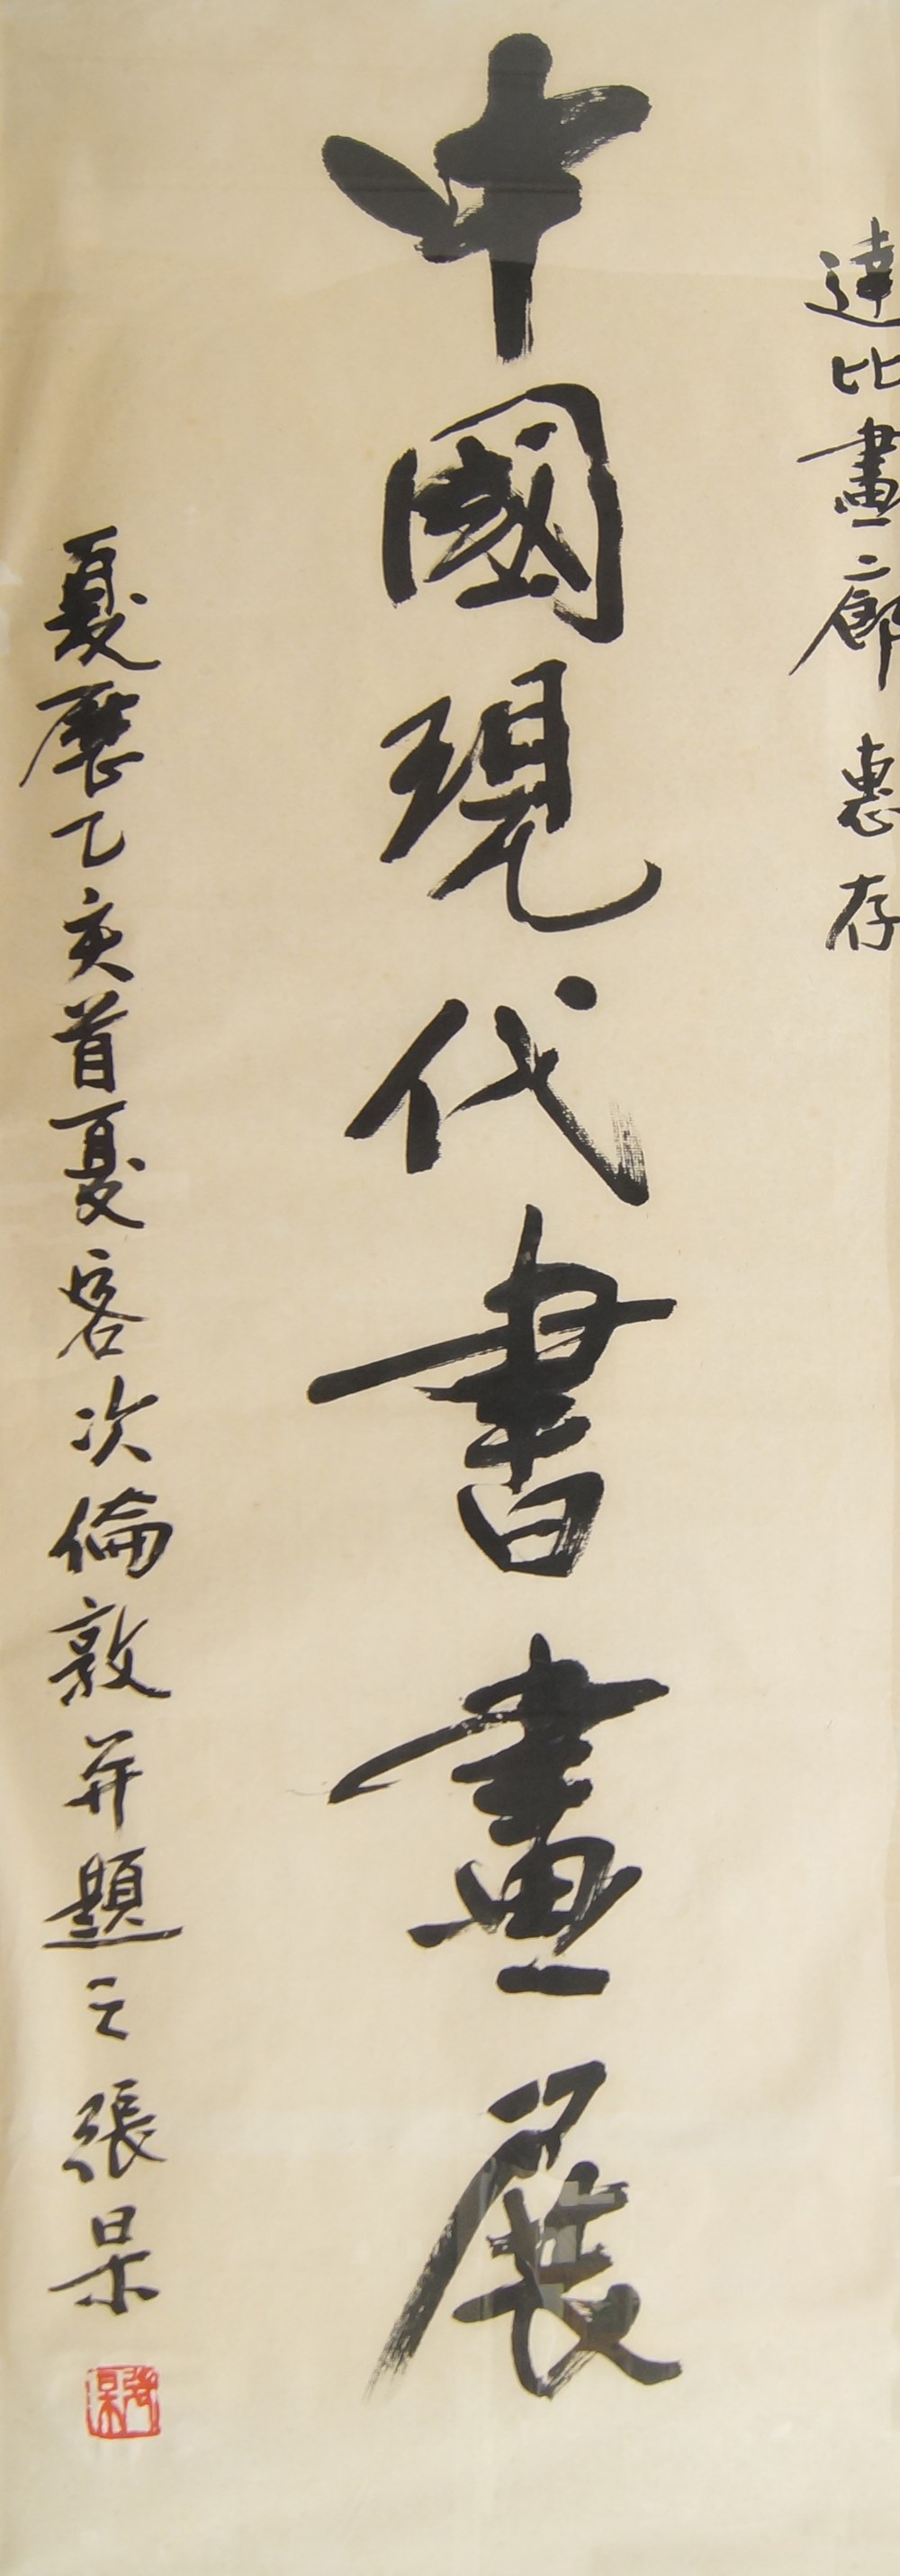 達比畫廊 惠存
中國現代書畫展
夏曆乙亥首夏客次倫敦并題之張杲
張杲